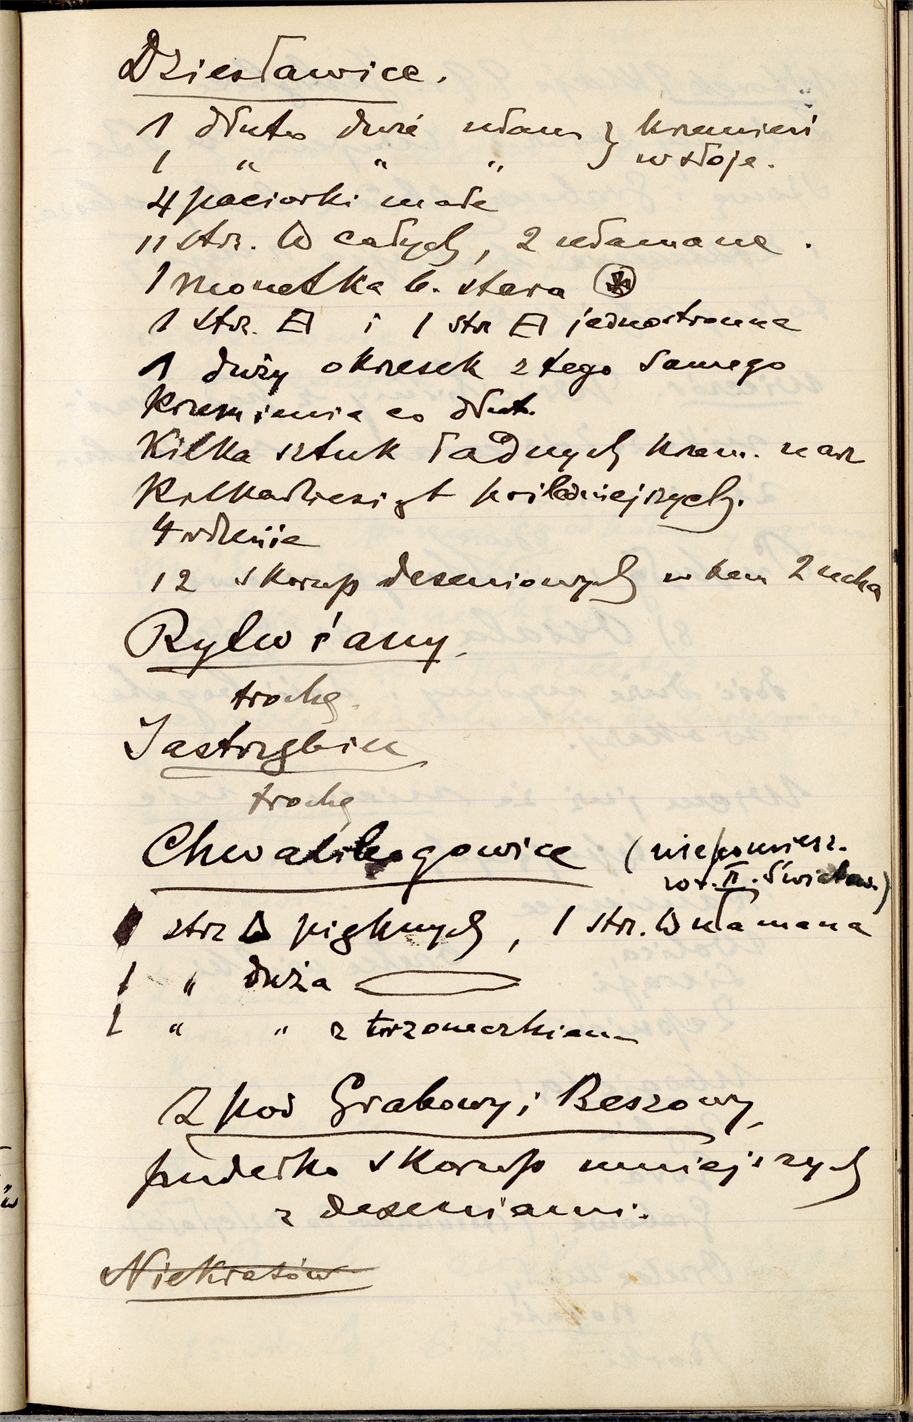 Dziesławice.
1 dłuto duże ułam. } krzemień
1 " " " } w słoje.
4 paciorki małe
11 strz. całych, 2 ułamane.
1 monetka b. stara
1 strz. i 1 strz jednostronna
1 duży okrzesek z tego samego
krzemienia co dłut.
Kilka sztuk ładnych krzem. narz
Kilkadziesiąt pośledniejszych.
4 rdzenie
12 skorup deseniowych w tem 2 ucha
Rytwiany.
trochę.
Jastrzębiu
trochę
Chwalibogowice (niepomiesz.
w r. II. Światow.)
strz pięknych, 1 str. ułamana
1 " duża
1 " " z trzoneczkiem
Z pod Grabowy i Beszowy,
pudełko skorup mniejszych
z deseniami.
Niekrasów